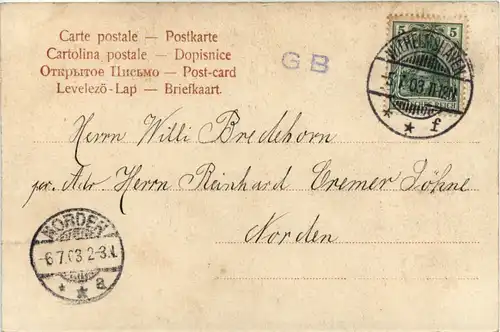 Carte postale — Postkarte
Cartolina postale — Dopisnice
Открытое Письмо — Post-card
Levelező-Lap — Briefkaart.
G B
5 5
WILHELMSHAVEN
.03. 11-12N
* * f
Herrn Willi Bredehorn
per Adr. Herrn Reinhard Cremer Söhne
Norden
NORDEN
-6.7.03 2-3N.
* * a